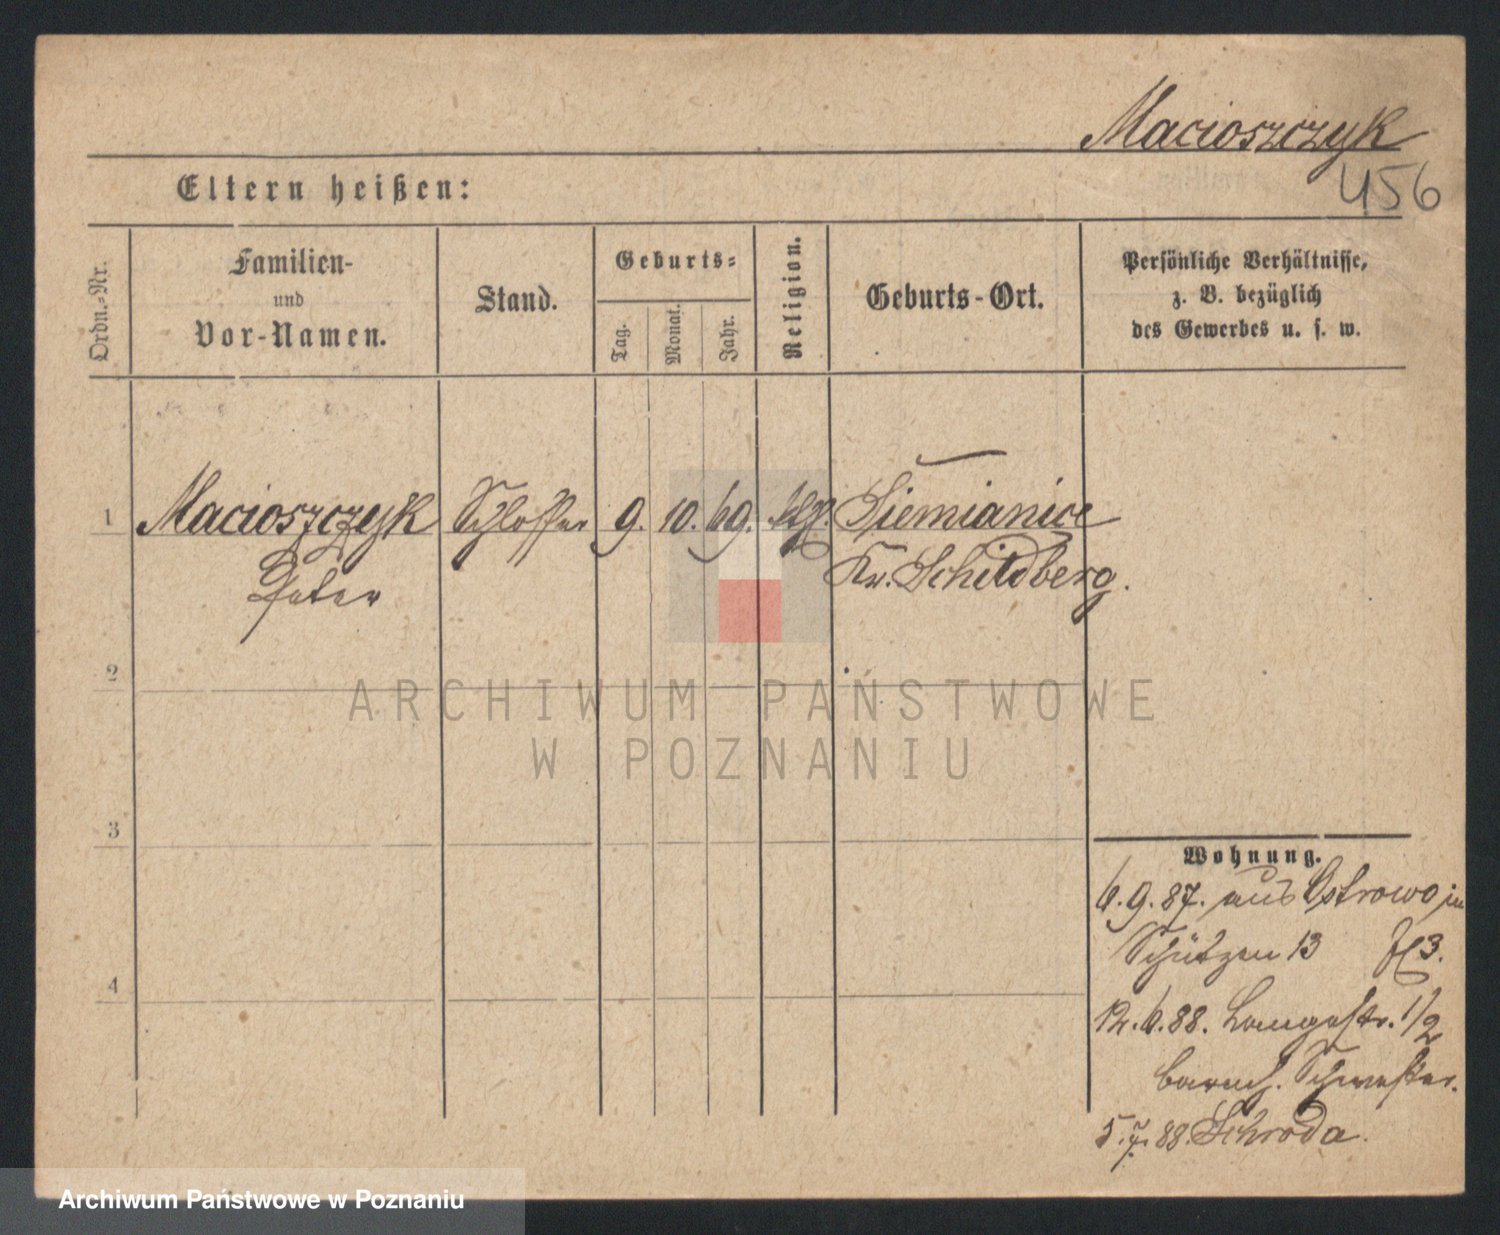 Macioszczyk
456
Eltern heißen:
Ordn.-Nr.
Familien-
und
Vor-Namen.
Stand.
Geburts-
Tag.
Monat.
Jahr.
Religion.
Geburts-Ort.
Persönliche Verhältnisse,
z. B. bezüglich
des Gewerbes u. s. w.
1 Macioszczyk Schlosser 9. 10. 69. kth. Siemianice
Peter Kr. Schildberg.
2
3
4
Wohnung.
6.9.87. aus Ostrowo in
Schützen 13
12.6.88. Langestr. 1/2
barmh. Schwester.
5.7.88. Schroda.
ARCHIWUM PAŃSTWOWE
W POZNANIU
Archiwum Państwowe w Poznaniu